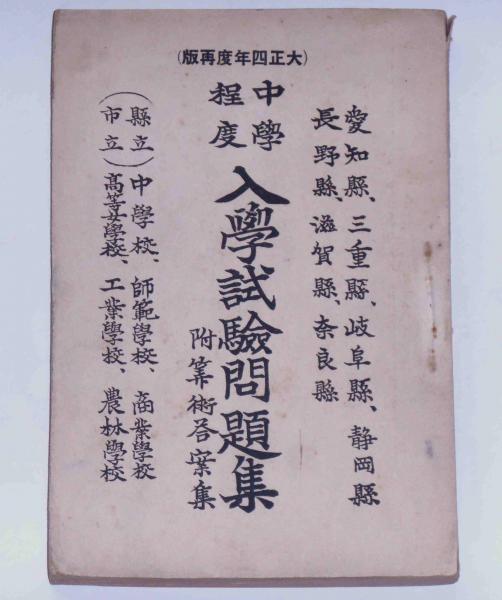 (大正四年度再版)
愛知縣、三重縣、岐阜縣、静岡縣
長野縣、滋賀縣、奈良縣
中學
程度
入學試驗問題集
附筭術答案集
(縣立
市立)
中學校、師範學校、商業學校
高等女學校、工業學校、農林學校